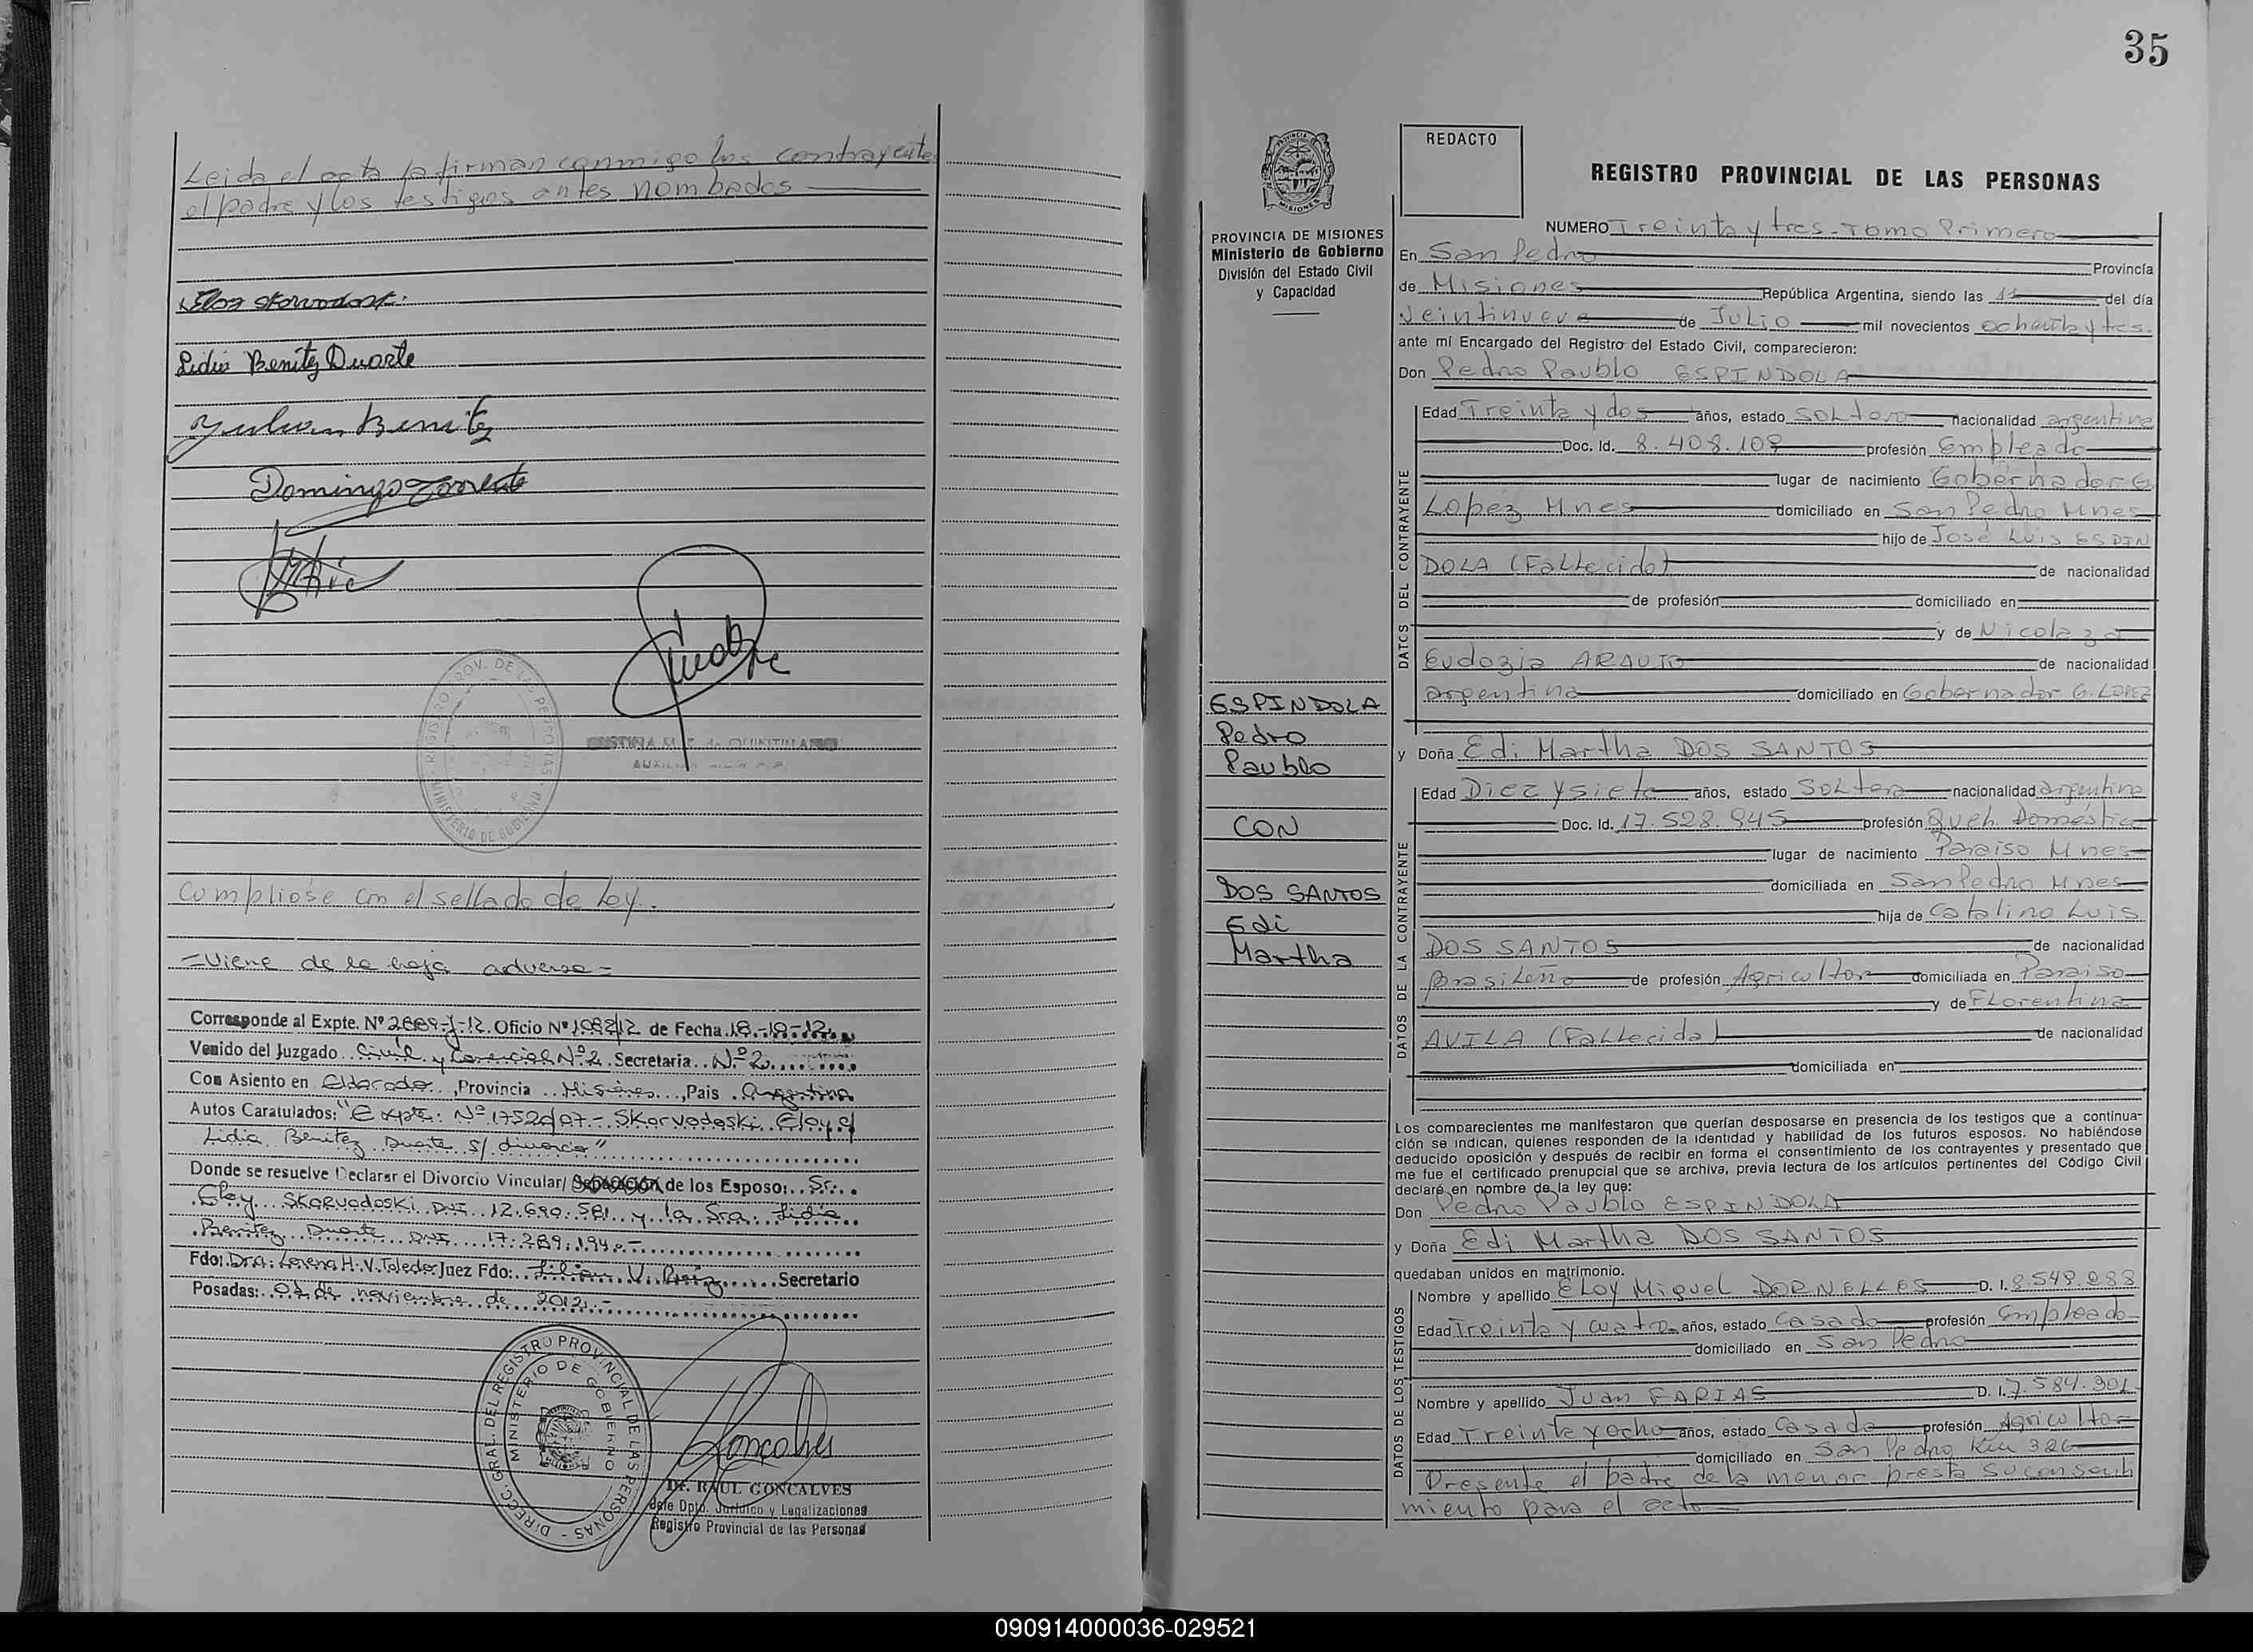 Leida el acta la firman conmigo los contrayentes
el padre y los testigos antes nombados
Lidia Benitez Duarte
Julian Benitez
Domingo Torrente
REGISTRO PROV. DE LAS PERSONAS
MINISTERIO DE GOBIERNO
Cumpliose con el sellado de Ley.
=Viene de la hoja adversa=
Corresponde al Expte. Nº 2669-J-12. Oficio Nº 1982/12 de Fecha 18.-10-12.
Venido del Juzgado Civil y Comercial Nº 2. Secretaria Nº 2
Con Asiento en Eldorado, Provincia Misiones, Pais Argentina
Autos Caratulados: "Expte. Nº 1752/07.- Skarvodoski Eloy c/
Lidia Benitez Duarte s/ divorcio"
Donde se resuelve Declarar el Divorcio Vincular/ Separación de los Esposo: Sr.
Eloy SKARVODOSKI DNI 12.690.581 y la Sra. Lidia
Benitez Duarte DNI 17.289.194.-
Fdo: Dra. Lorena H. V. Toledo Juez Fdo: Lilian V. Secretario
Posadas: 02 de noviembre de 2012.-
DIRECC. GRAL. DEL REGISTRO PROVINCIAL DE LAS PERSONAS
MINISTERIO DE GOBIERNO
Dr. RAUL GONCALVES
Jefe Dpto. Jurídico y Legalizaciones
Registro Provincial de las Personas
35
PROVINCIA DE MISIONES
Ministerio de Gobierno
División del Estado Civil
y Capacidad
ESPINDOLA
Pedro
Paublo
CON
DOS SANTOS
Edi
Martha
REDACTO
REGISTRO PROVINCIAL DE LAS PERSONAS
NUMERO Treinta y tres-Tomo Primero
En San Pedro Provincia
de Misiones República Argentina, siendo las 11 del día
Veintinueve de Julio mil novecientos ochenta y tres.
ante mí Encargado del Registro del Estado Civil, comparecieron:
Don Pedro Paublo ESPINDOLA
DATOS DEL CONTRAYENTE
Edad Treinta y dos años, estado Soltero nacionalidad argentina
Doc. Id. 8.408.109 profesión Empleado
lugar de nacimiento Gobernador G
Lopez Mnes domiciliado en San Pedro Mnes
hijo de José Luis ESPIN
DOLA (Fallecido) de nacionalidad
de profesión domiciliado en
y de Nicolaza
Eudozia ARAUJO de nacionalidad
argentina domiciliado en Gobernador G. LOPEZ
y Doña Edi Martha DOS SANTOS
DATOS DE LA CONTRAYENTE
Edad Diez y siete años, estado Soltera nacionalidad argentina
Doc. Id. 17.528.945 profesión Queh. Domestica
lugar de nacimiento Paraiso Mnes
domiciliada en San Pedro Mnes
hija de Catalino Luis
DOS SANTOS de nacionalidad
Brasileño de profesión Agricultor domiciliada en Paraiso
y de Florentina
AVILA (Fallecida) de nacionalidad
domiciliada en
Los comparecientes me manifestaron que querían desposarse en presencia de los testigos que a continua-
ción se indican, quienes responden de la identidad y habilidad de los futuros esposos. No habiéndose
deducido oposición y después de recibir en forma el consentimiento de los contrayentes y presentado que
me fue el certificado prenupcial que se archiva, previa lectura de los artículos pertinentes del Código Civil
declaré en nombre de la ley que:
Don Pedro Paublo ESPINDOLA
y Doña Edi Martha DOS SANTOS
quedaban unidos en matrimonio.
DATOS DE LOS TESTIGOS
Nombre y apellido Eloy Miguel DORNELLES D. I. 8.549.288
Edad Treinta y cuatro años, estado Casado profesión Empleado
domiciliado en San Pedro
Nombre y apellido Juan FARIAS D. I. 7.584.901
Edad Treinta y ocho años, estado Casado profesión Agricultor
domiciliado en San Pedro Km 326
Presente el padre de la menor presta su consenti
miento para el acto
090914000036-029521